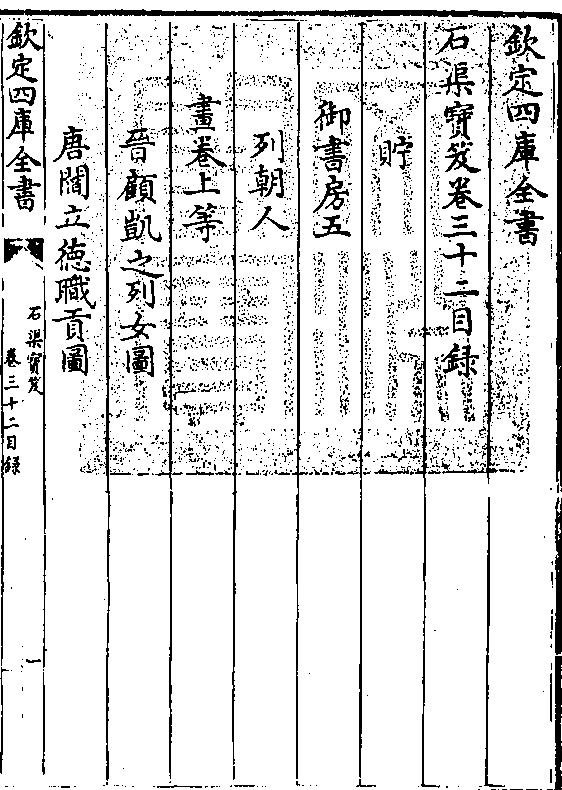 欽定四庫全書
石渠寶笈卷三十二目録
貯
御書房五
列朝人
畫卷上等
晉顧凱之列女圖
唐閻立徳職貢圖
欽定四庫全書
石渠寶笈
卷三十二目録
一